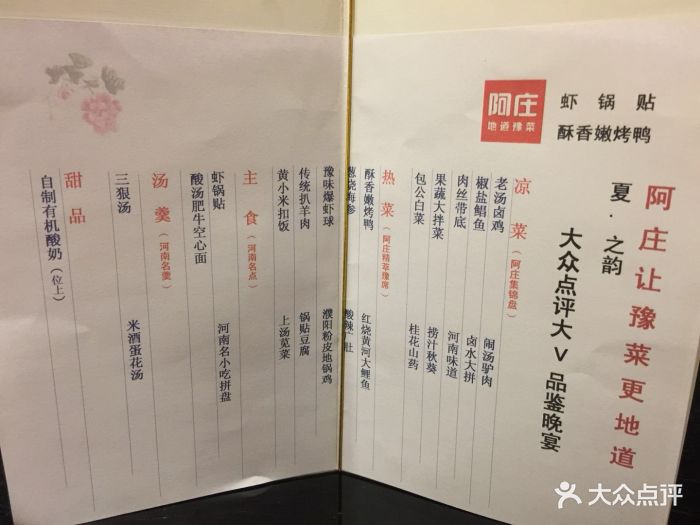 阿庄
地道豫菜
虾锅贴
酥香嫩烤鸭
阿庄让豫菜更地道
夏·之韵
大众点评大V品鉴晚宴
凉菜（阿庄集锦盘）
老汤卤鸡 闹汤驴肉
椒盐鲳鱼 卤水大拼
肉丝带底 河南味道
果蔬大拌菜 捞汁秋葵
包公白菜 桂花山药
热菜（阿庄精萃豫席）
酥香嫩烤鸭 红烧黄河大鲤鱼
葱烧海参 酸辣广肚
豫味爆虾球 濮阳粉皮地锅鸡
传统扒羊肉 锅贴豆腐
黄小米扣饭 上汤苋菜
主食（河南名点）
虾锅贴 河南名小吃拼盘
酸汤肥牛空心面
汤羹（河南名羹）
三狠汤 米酒蛋花汤
甜品
自制有机酸奶（位上）
大众点评